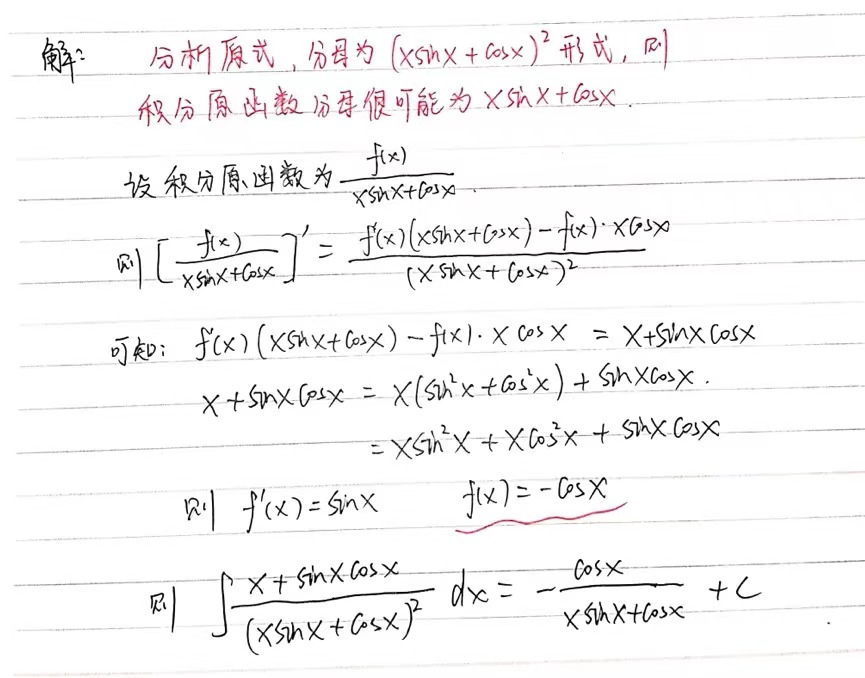 解: 分析原式, 分母为 (xsinx + cosx)² 形式, 则
积分原函数分母很可能为 xsinx + cosx.
设积分原函数为 f(x)/(xsinx+cosx).
则 [f(x)/(xsinx+cosx)]' = (f'(x)(xsinx+cosx) - f(x)·xcosx)/(xsinx+cosx)²
可知: f'(x)(xsinx+cosx) - f(x)·xcosx = x+sinxcosx
x+sinxcosx = x(sin²x+cos²x) + sinxcosx.
= xsin²x + xcos²x + sinxcosx
则 f'(x) = sinx f(x) = -cosx
则 ∫ (x+sinxcosx)/(xsinx+cosx)² dx = - cosx/(xsinx+cosx) + C